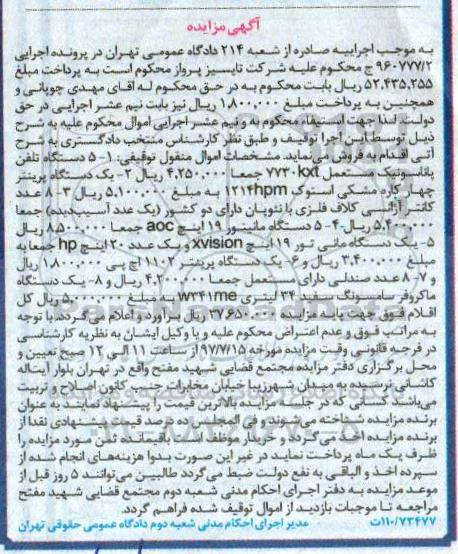 آگهی مزایده
به موجب اجراییه صادره از شعبه ۲۱۴ دادگاه عمومی تهران در پرونده اجرایی
۹۶۰۷۷۷/۲ ج محکوم علیه شرکت تایسیز پرواز محکوم است به پرداخت مبلغ
۵۲,۴۳۵,۲۵۵ ریال بابت محکوم به در حق محکوم له اقای مهدی چوپانی و
همچنین به پرداخت مبلغ ۱,۸۰۰,۰۰۰ ریال نیز بابت نیم عشر اجرایی در حق
دولت لذا جهت استیفاء محکوم به و نیم عشر اجرایی اموال محکوم علیه به شرح
ذیل توسط این اجرا توقیف و طبق نظر کارشناس منتخب دادگستری به شرح
آتی اقدام به فروش می‌نماید. مشخصات اموال منقول توقیفی: ۱- ۵ دستگاه تلفن
پاناسونیک مستعمل ۷۷۳۰kxt جمعا ۴,۲۵۰,۰۰۰ ریال ۲- یک دستگاه پرینتر
چهار کاره مشکی استوک ۱۲۱۴hpm به مبلغ ۵,۱۰۰,۰۰۰ ریال ۳- ۸ عدد
کانتر آژانسی کلاف فلزی با نئوپان دارای دو کشور (یک عدد آسیب‌دیده) جمعا
۵,۴۰۰,۰۰۰ ریال ۴- ۵ دستگاه مانیتور ۱۹ اینچ aoc جمعا ۸,۵۰۰,۰۰۰ ریال
۵- یک دستگاه مانی تور ۱۹ اینچ xvision و یک عدد ۲۰ اینچ hp جمعا به
مبلغ ۳,۴۰۰,۰۰۰ ریال و ۶- یک دستگاه پرینتر ۱۱۰۲ اچ پی ۱,۸۰۰,۰۰۰ ریال
و ۷- ۸ عدد صندلی دارای مستعمل جمعا ریال و ۸- یک دستگاه
ماکروفر سامسونگ سفید ۳۴ لیتری w۳۴۱me به مبلغ ۵,۰۰۰,۰۰۰ ریال کل
اقلام فوق جهت پایه مزایده ۳۷,۶۵۰,۰۰۰ ریال براورد و اعلام می‌گردد. با توجه
به مراتب فوق و عدم اعتراض محکوم علیه و یا وکیل ایشان به نظریه کارشناسی
در فرجه قانونی وقت مزایده مورخه ۹۷/۷/۱۵ از ساعت ۱۱ الی ۱۲ صبح تعیین و
محل برگزاری دفتر مزایده مجتمع قضایی شهید مفتح واقع در تهران بلوار آیت‌اله
کاشانی نرسیده به میدان شهرزیبا خیابان مخابرات جنب کانون اصلاح و تربیت
می‌باشد کسانی که در جلسه مزایده بالاترین قیمت را پیشنهاد نمایند به عنوان
برنده مزایده شناخته می‌شوند و فی المجلس ده درصد قیمت پیشنهادی نقدا از
برنده مزایده اخذ می‌گردد و خریدار موظف است باقیمانده ثمن مورد مزایده را
ظرف یک ماه پرداخت نماید در غیر این صورت بدوا هزینه‌های انجام شده از
سپرده اخذ و الباقی به نفع دولت ضبط می‌گردد طالبین می‌توانند ۵ روز قبل از
موعد مزایده به دفتر اجرای احکام مدنی شعبه دوم مجتمع قضایی شهید مفتح
مراجعه تا موجبات بازدید از اموال توقیف شده فراهم گردد.
۱۱۰/۷۳۴۷۷ت مدیر اجرای احکام مدنی شعبه دوم دادگاه عمومی حقوقی تهران